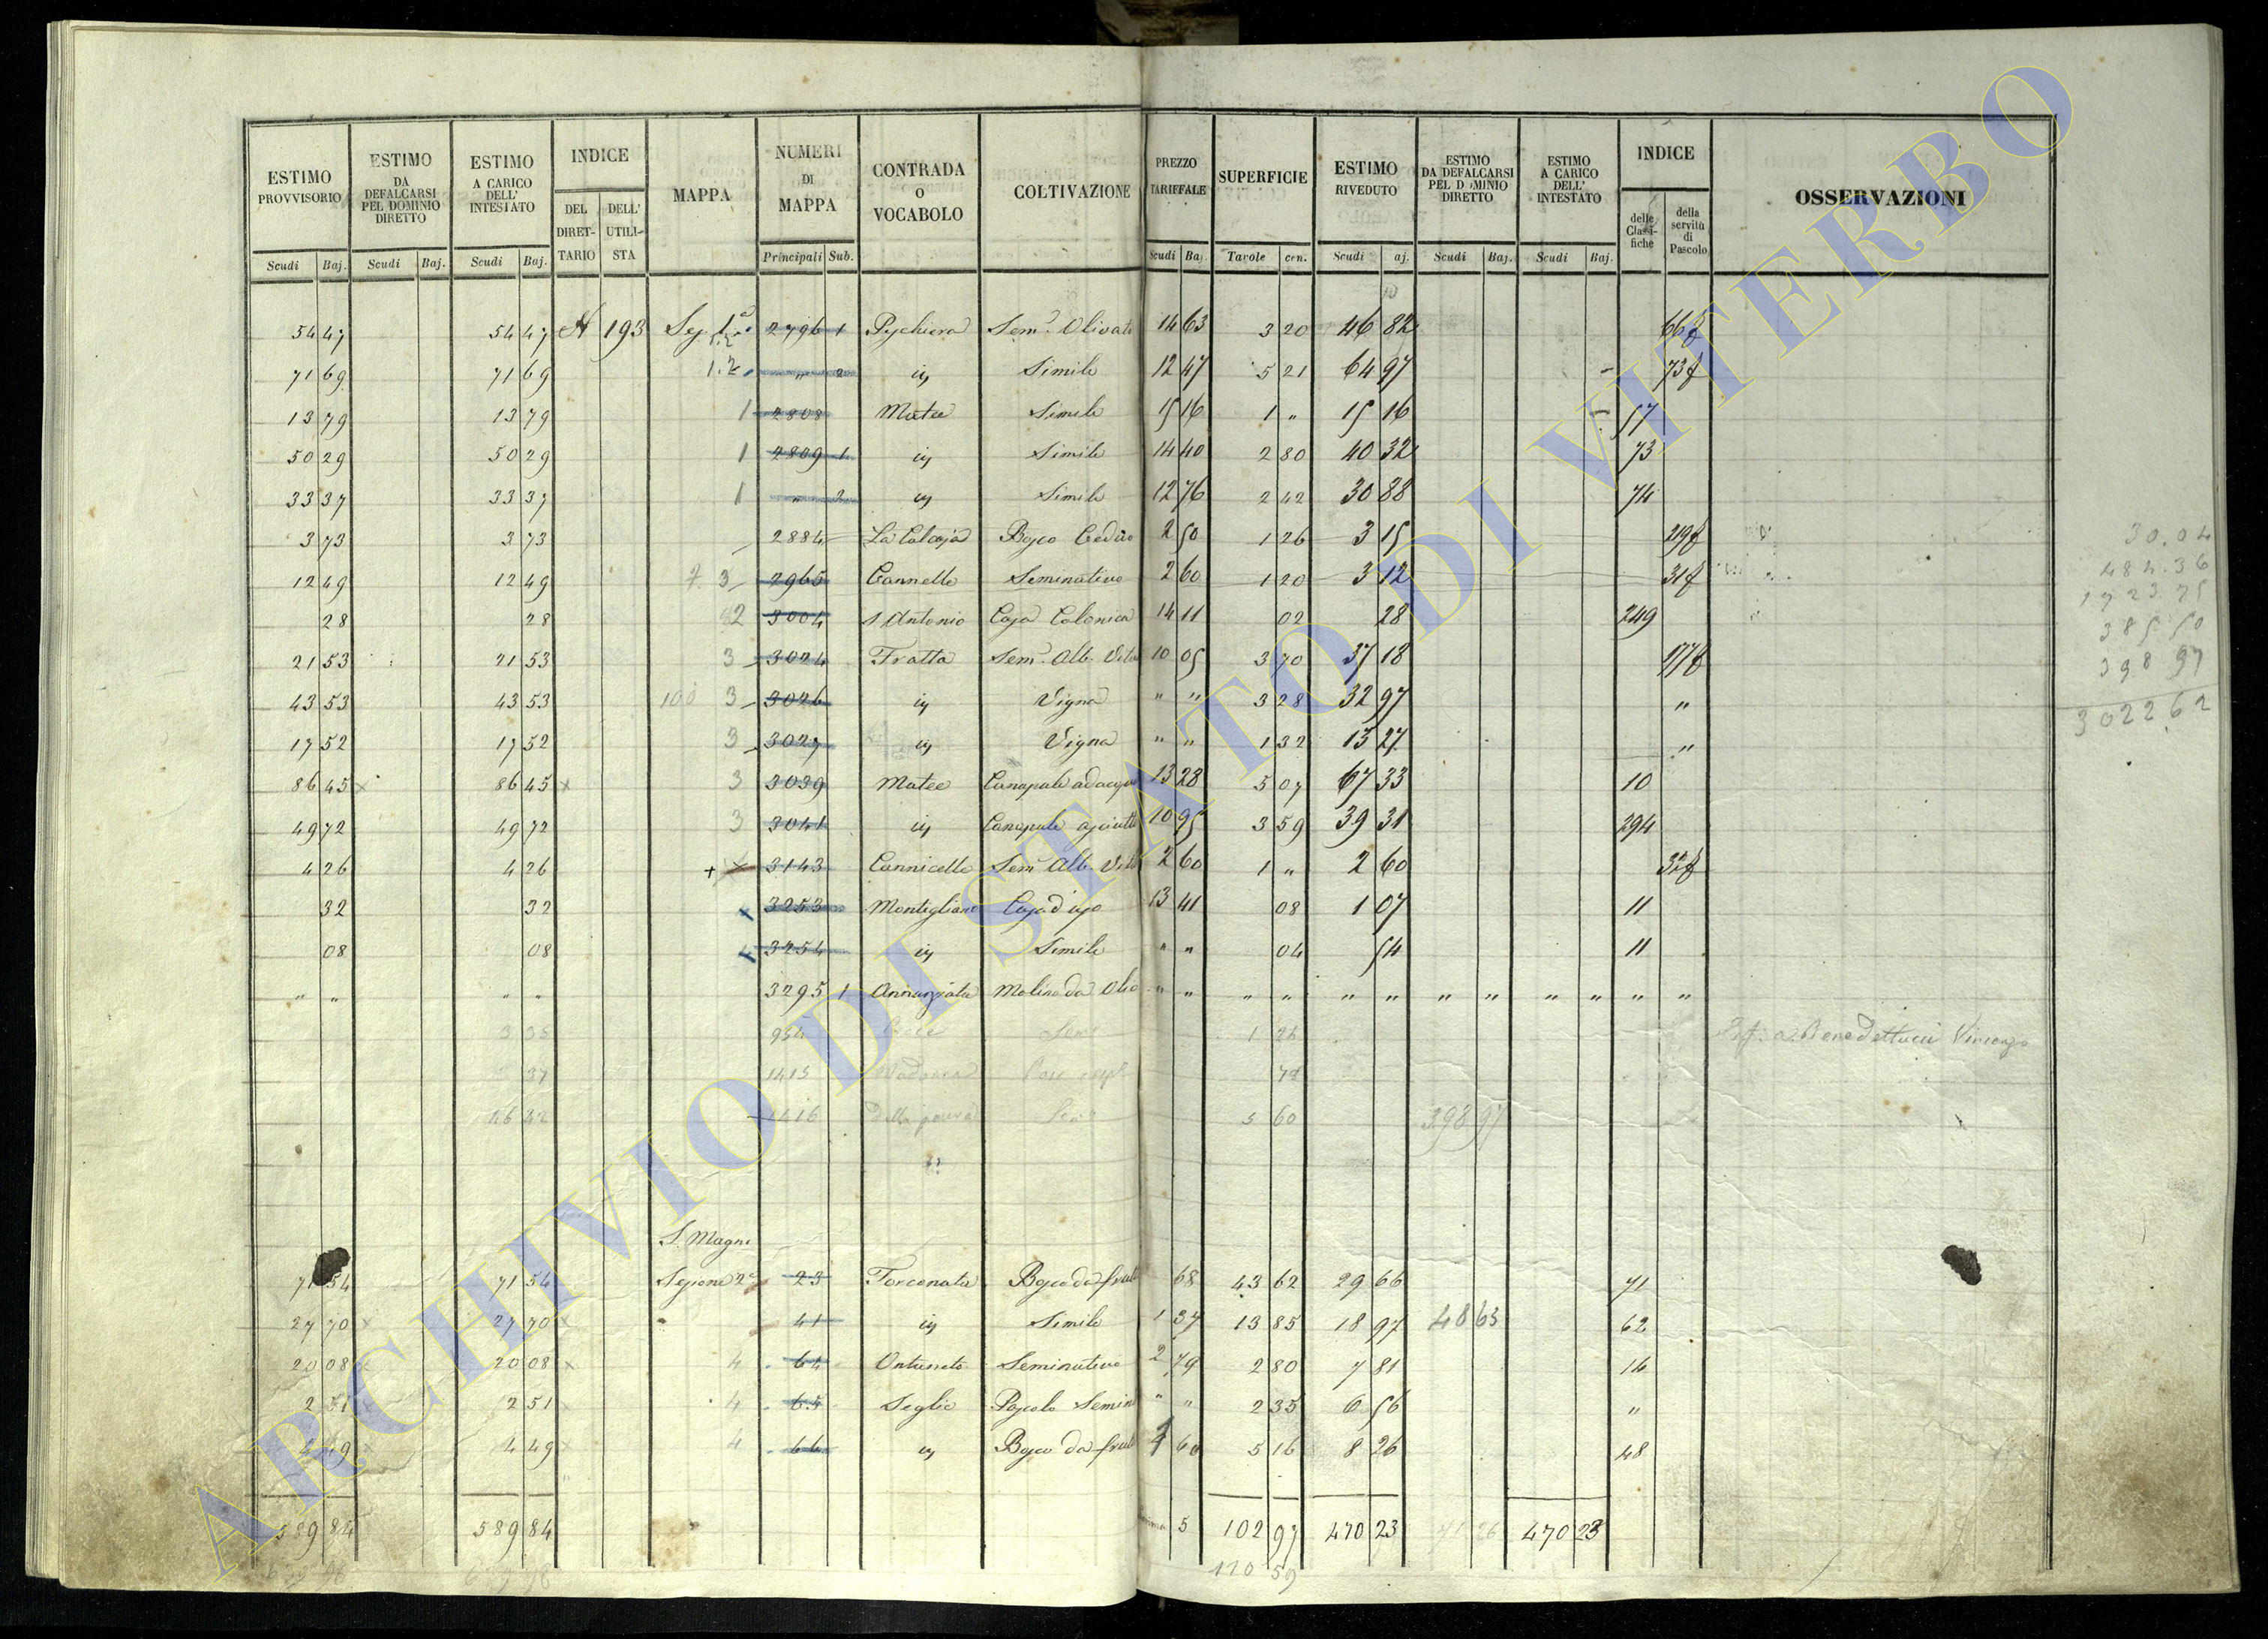 ESTIMO PROVVISORIO | ESTIMO DA DEFALCARSI PEL DOMINIO DIRETTO | ESTIMO A CARICO DELL' INTESTATO | INDICE | MAPPA | NUMERI DI MAPPA | CONTRADA O VOCABOLO | COLTIVAZIONE | PREZZO TARIFFALE | SUPERFICIE | ESTIMO RIVEDUTO | ESTIMO DA DEFALCARSI PEL D MINIO DIRETTO | ESTIMO A CARICO DELL' INTESTATO | INDICE | OSSERVAZIONI
DEL DIRETTARIO | DELL' UTILISTA | delle Classifiche | della servitù di Pascolo
Scudi | Baj. | Scudi | Baj. | Scudi | Baj. | Principali | Sub. | Scudi | Baj. | Tavole | cen. | Scudi | aj. | Scudi | Baj. | Scudi | Baj.
54 47 | 54 47 | A | 193 | Sez. 1a | 2796 | 1 | Sem. Olivato | 14 63 | 3 20 | 46 82 | 66f
71 69 | 71 69 | " | 2 | ivi | Simile | 12 47 | 5 21 | 64 97 | 73f
13 79 | 13 79 | 1 | 2808 | Matee | Simile | 15 16 | 1 " | 15 16 | 57
50 29 | 50 29 | 1 | 2809 | 1 | ivi | Simile | 14 40 | 2 80 | 40 32 | 73
33 37 | 33 37 | 1 | " | 2 | ivi | Simile | 12 76 | 2 42 | 30 88 | 74
3 73 | 3 73 | 2884 | Bosco Ceduo | 2 50 | 1 26 | 3 15 | 29f
12 49 | 12 49 | 3 | 2965 | Cannelle | Seminativo | 2 60 | 1 20 | 3 12 | 31f
28 | 28 | 2 | 3004 | S. Antonio | Casa Colonica | 14 11 | 02 | 28 | 249
21 53 | 21 53 | 3 | 3024 | Fratta | Sem. Alb. Vit | 10 05 | 3 70 | 37 18 | 177f
43 53 | 43 53 | 100 | 3 | 3026 | ivi | Vigna | " " | 3 28 | 32 97 | "
17 52 | 17 52 | 3 | 3027 | ivi | Vigna | " " | 1 32 | 13 27 | "
86 45 | 86 45 | 3 | 3039 | Matee | Canapule adacqu | 13 28 | 5 07 | 67 33 | 10
49 72 | 49 72 | 3 | 3041 | ivi | Canapule asciutto | 10 95 | 3 59 | 39 31 | 294
4 26 | 4 26 | + | 3143 | Cannicelle | Sem. Alb. Vit | 2 60 | 1 " | 2 60 | 32f
32 | 32 | 3253 | Montigliano | Casa d'uso | 13 41 | 08 | 1 07 | 11
08 | 08 | 3254 | ivi | Simile | " " | 04 | 54 | 11
" " | " " | 3295 | 1 | Annunziata | Molino da Olio | " " | " " | " " | " " | " " | " "
3 35 | 954 | Sem | 1 26 | a Benedettucci Vincenzo
37 | 1415 | Madonna | 78
46 32 | 1416 | della | Sem | 5 60 | 398 97
S. Magno
71 54 | 71 54 | Sezione 2a | 23 | Torconata | Bosco da frutto | 68 | 43 62 | 29 66 | 71
27 70 | 27 70 | 41 | ivi | Simile | 1 37 | 13 85 | 18 97 | 48 63 | 62
20 08 | 20 08 | 4 | 64 | Ontaneto | Seminativo | 2 79 | 2 80 | 7 81 | 14
2 51 | 2 51 | 4 | 65 | Seglie | Pascolo Semin | " " | 2 35 | 6 56 | "
4 49 | 4 49 | 4 | 66 | ivi | Bosco da frutto | 1 60 | 5 16 | 8 26 | 48
589 84 | 589 84 | 5 | 102 97 | 470 23 | 71 26 | 470 23
110 59
30.04
484.36
1723 75
385 50
398 97
3022 62
ARCHIVIO DI STATO DI VITERBO